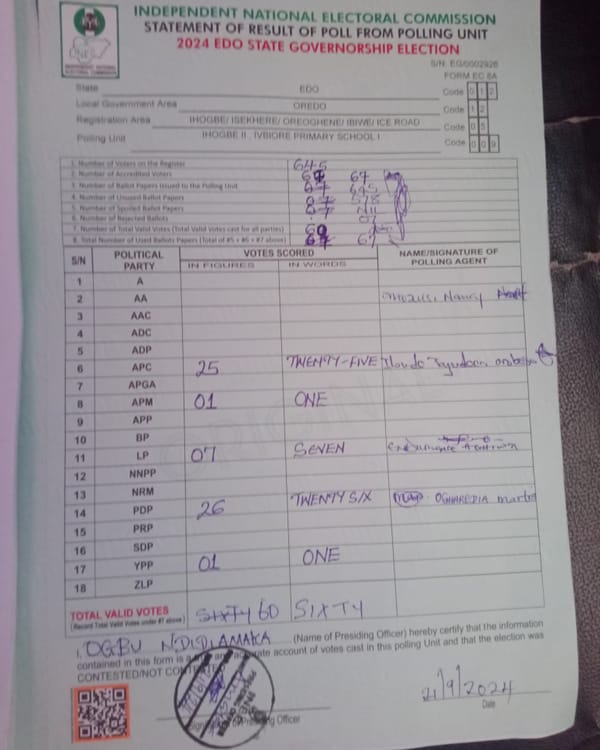 INDEPENDENT NATIONAL ELECTORAL COMMISSION
STATEMENT OF RESULT OF POLL FROM POLLING UNIT
2024 EDO STATE GOVERNORSHIP ELECTION
S/N: EG/0002926
FORM EC 8A
State EDO Code 0 1 2
Local Government Area OREDO Code 1 2
Registration Area IHOGBE/ ISEKHERE/ OREOGHENE/ IBIWE/ ICE ROAD Code 0 5
Polling Unit IHOGBE II , IVBIORE PRIMARY SCHOOL I Code 0 0 9
1. Number of Voters on the Register 645
2. Number of Accredited Voters 67
3. Number of Ballot Papers Issued to the Polling Unit 645
4. Number of Unused Ballot Papers 578
5. Number of Spoiled Ballot Papers
6. Number of Rejected Ballots 07
7. Number of Total Valid Votes (Total Valid Votes cast for all parties) 60
8. Total Number of Used Ballots Papers (Total of #5 + #6 + #7 above) 67
S/N POLITICAL PARTY VOTES SCORED NAME/SIGNATURE OF POLLING AGENT
IN FIGURES IN WORDS
1 A
2 AA Nancy
3 AAC
4 ADC
5 ADP
6 APC 25 TWENTY-FIVE
7 APGA
8 APM 01 ONE
9 APP
10 BP
11 LP 07 SEVEN
12 NNPP
13 NRM
14 PDP 26 TWENTY SIX
15 PRP
16 SDP
17 YPP 01 ONE
18 ZLP
TOTAL VALID VOTES SIXTY 60 SIXTY
(Record Total Valid Votes under #7 above)
I, OGBU NDIDIAMAKA (Name of Presiding Officer) hereby certify that the information
contained in this form is a account of votes cast in this polling Unit and that the election was
CONTESTED/NOT CONTESTED
21/9/2024
Date
Presiding Officer